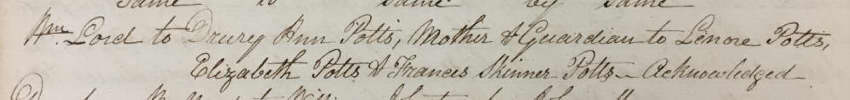 same to same by same
Wm Lord to Drurey Ann Potts, Mother & Guardian to Lenore Potts,
Elizabeth Potts & Frances Skinner Potts — Acknowledged